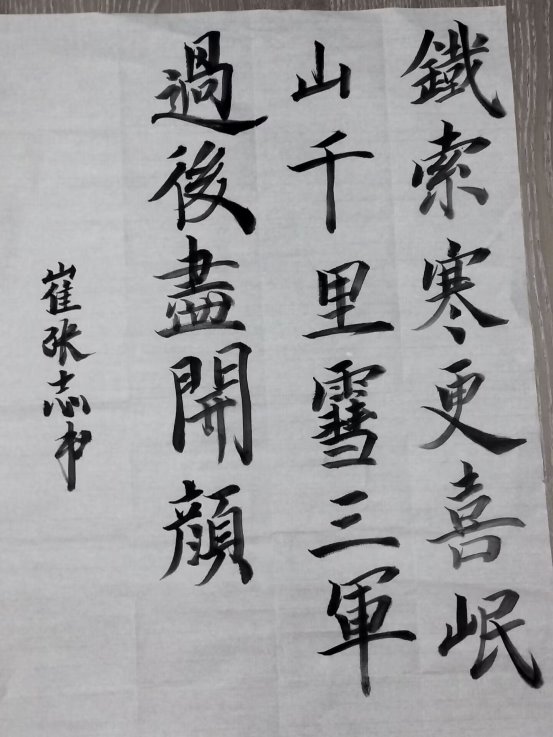 鐵索寒更喜岷
山千里雪三軍
過後盡開顏
崔张志书